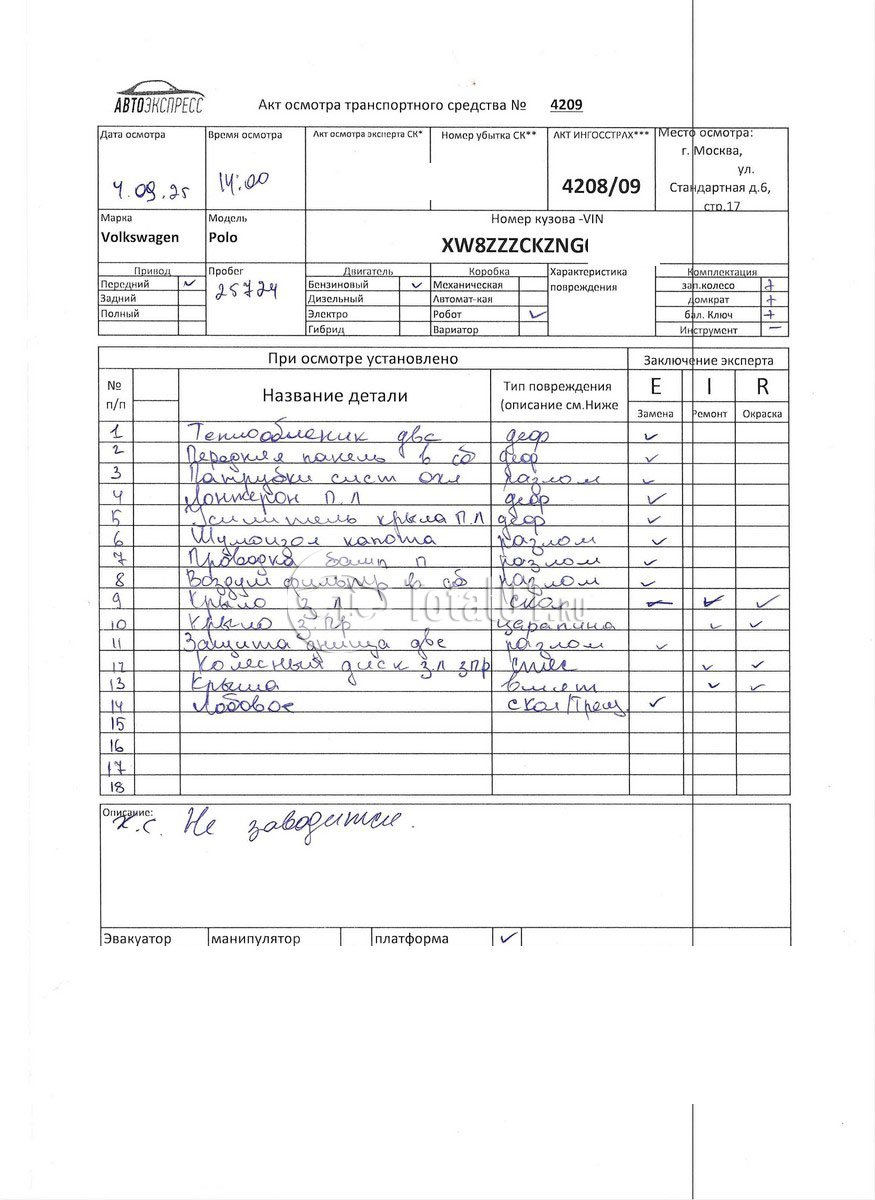 АВТОЭКСПРЕСС
Акт осмотра транспортного средства № 4209
Дата осмотра
Время осмотра
Акт осмотра эксперта СК*
Номер убытка СК**
АКТ ИНГОССТРАХ***
Место осмотра:
г. Москва,
ул.
Стандартная д.6,
стр.17
4.09.25
14:00
4208/09
Марка
Модель
Номер кузова -VIN
Volkswagen
Polo
XW8ZZZCKZNG
Привод
Пробег
Двигатель
Коробка
Характеристика
повреждения
Комплектация
Передний ✓
25724
Бензиновый ✓
Механическая
зап.колесо +
Задний
Дизельный
Автомат-кая
домкрат +
Полный
Электро
Робот ✓
бал. Ключ +
Гибрид
Вариатор
Инструмент –
При осмотре установлено
Заключение эксперта
№
п/п
Название детали
Тип повреждения
(описание см.Ниже
E I R
Замена Ремонт Окраска
1 Теплообменик двс деф ✓
2 Передняя панель в сб деф ✓
3 Патрубки сист охл разлом ✓
4 Лонжерон П.Л деф ✓
5 Усилитель крыла П.Л деф ✓
6 Шумоизол капота разлом ✓
7 Проводка бамп п разлом ✓
8 Воздуш фильтр в сб разлом ✓
9 Крыло з л скол ✓ ✓
10 Крыло з.пр царапина ✓ ✓
11 Защита днища двс разлом ✓
12 Колесный диск з.л зпр ✓ ✓
13 Крыша вмят ✓ ✓
14 Лобовое скол/Трещ. ✓
15
16
17
18
Total01.ru
Описание:
х.с. Не заводится.
Эвакуатор
манипулятор
платформа ✓